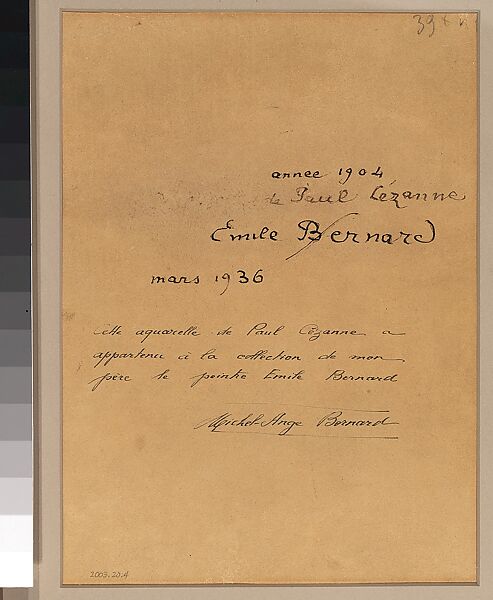 annee 1904
de Paul Cézanne
Emile Bernard
mars 1936
cette aquarelle de Paul Cézanne a
appartenu à la collection de mon
père le peintre Emile Bernard
Michel-Ange Bernard
2003.20.4